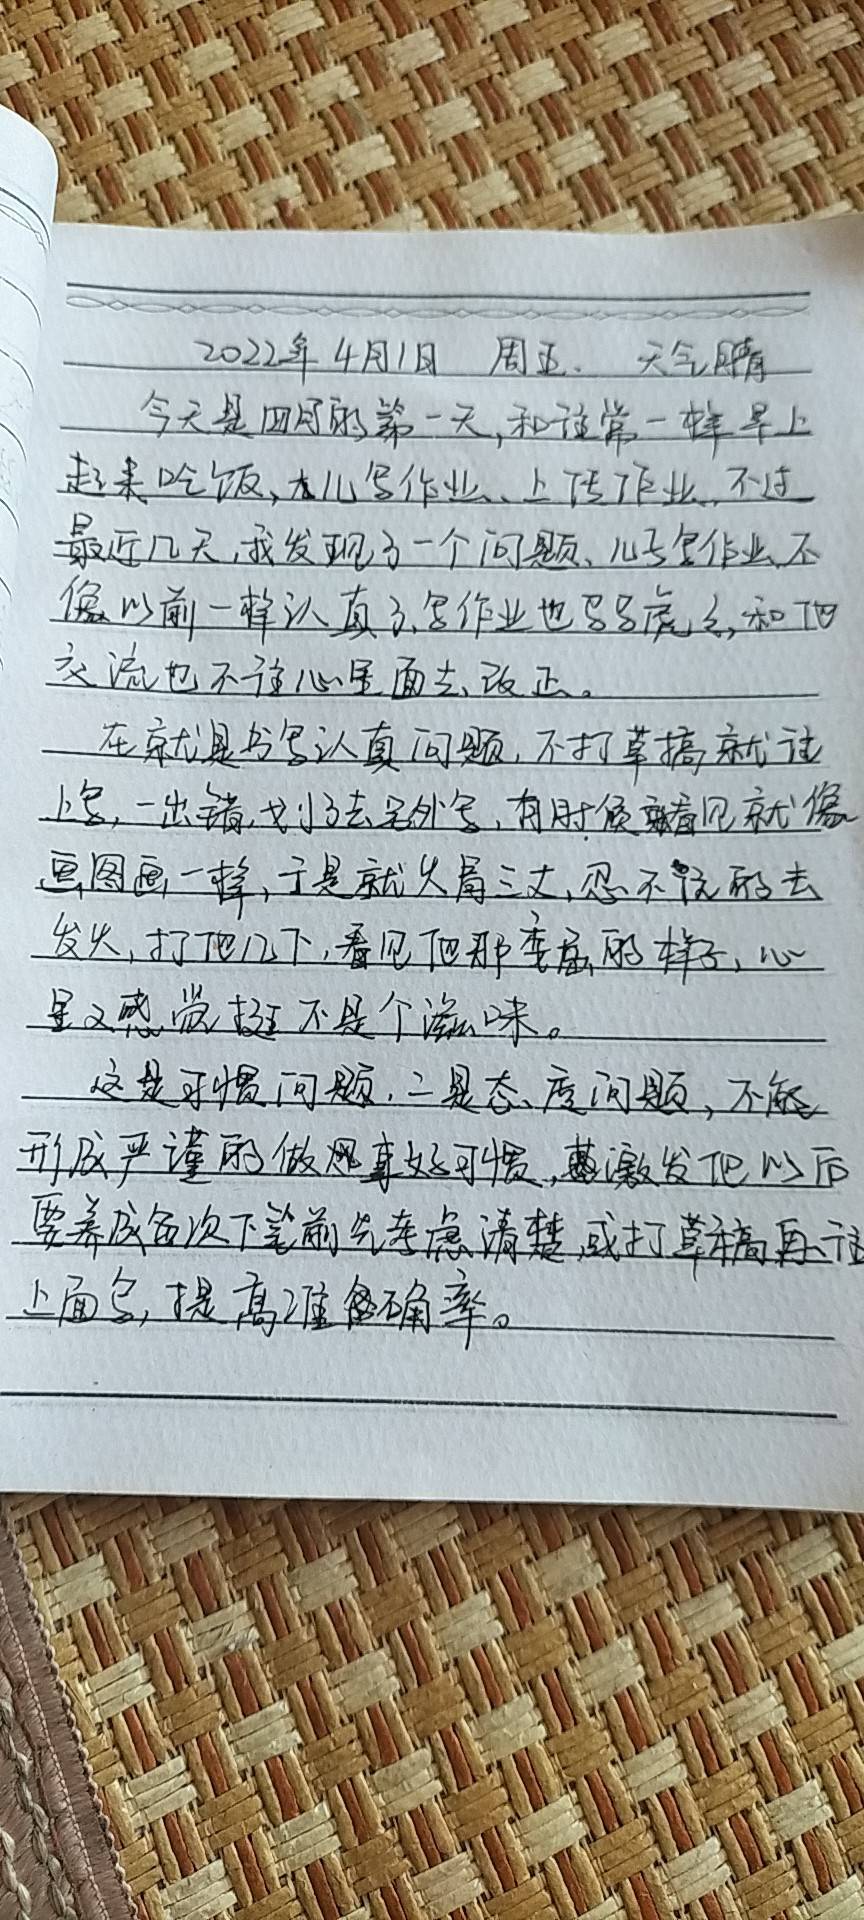 2022年4月1日 周五. 天气晴
今天是四月的第一天,和往常一样早上
起来吃饭,大儿写作业、上传作业,不过
最近几天,我发现了一个问题、儿子写作业不
像以前一样认真了,写作业也马马虎虎,和他
交流也不往心里面去,改正。
在就是书写认真问题,不打草搞就往
上写,一出错,划了去另外写,有时候看见就像
画图画一样,于是就火冒三丈,忍不住的去
发火,打他几下,看见他那委屈的样子,心
里又感觉挺不是个滋味。
这是习惯问题,二是态度问题,不能
形成严谨的做好习惯,激发他以后
要养成每次下笔前先考虑清楚,或打草稿再往
上面写,提高准确率。